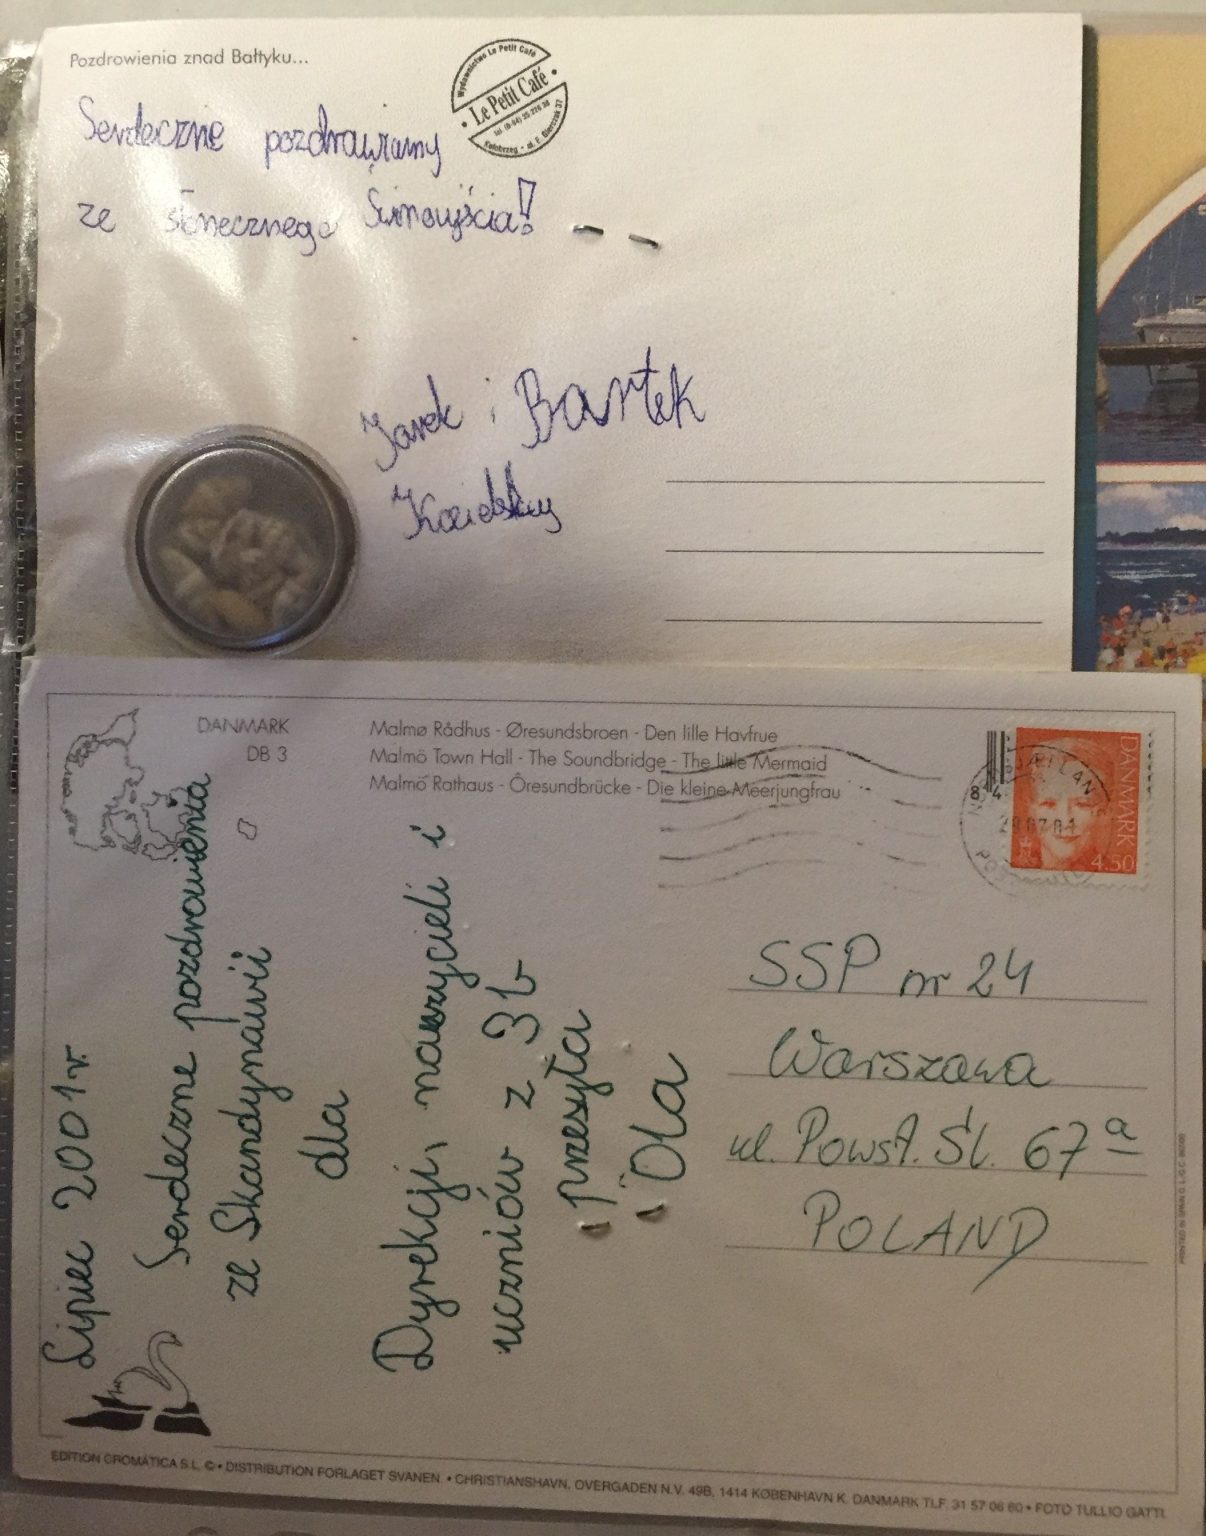 Pozdrowienia znad Bałtyku...
Wydawnictwo Le Petit Café
Le Petit Café
Kołobrzeg - ul. E. Gierczak 37
Serdecznie pozdrawiamy
ze słonecznego Świnoujścia!
Jarek i Bartek
DANMARK
DB 3
Malmø Rådhus - Øresundsbroen - Den lille Havfrue
Malmö Town Hall - The Soundbridge - The little Mermaid
Malmö Rathaus - Öresundbrücke - Die kleine Meerjungfrau
DANMARK
4.50
Lipiec 2001r.
Serdeczne pozdrowienia
ze Skandynawii
dla
Dyrekcji, nauczycieli i
uczniów z 3b
przesyła
Ola
SSP nr 24
Warszawa
ul. Powst. Śl. 67a
POLAND
EDITION CROMÁTICA S.L. © • DISTRIBUTION FORLAGET SVANEN. • CHRISTIANSHAVN, OVERGADEN N.V. 49B, 1414 KØBENHAVN K. DANMARK TLF. 31 57 06 60 • FOTO TULLIO GATTI.